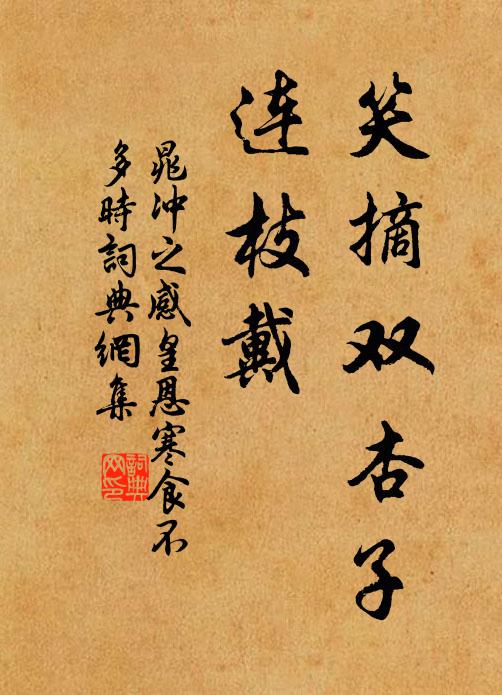 笑摘双杏子
连枝戴
晁冲之感皇恩寒食不
多時詞典網集
詞典
网印